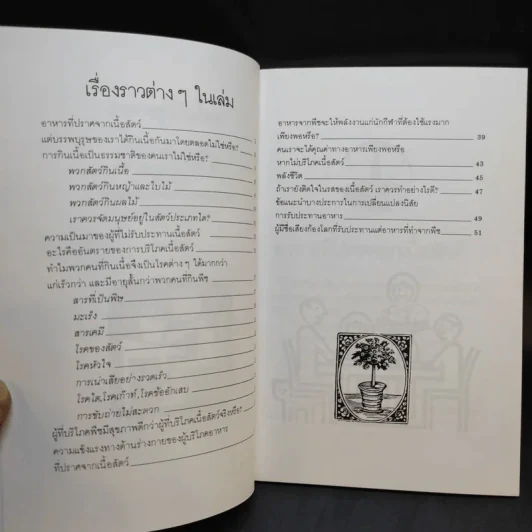 เรื่องราวต่าง ๆ ในเล่ม
อาหารที่ปราศจากเนื้อสัตว์
แต่บรรพบุรุษของเราได้กินเนื้อกันมาโดยตลอดไม่ใช่หรือ?
การกินเนื้อเป็นธรรมชาติของคนเราไม่ใช่หรือ?
พวกสัตว์กินเนื้อ
พวกสัตว์กินหญ้าและใบไม้
พวกสัตว์กินผลไม้
เราควรจัดมนุษย์อยู่ในสัตว์ประเภทใด?
ความเป็นมาของผู้ที่ไม่รับประทานเนื้อสัตว์
อะไรคืออันตรายของการบริโภคเนื้อสัตว์
ทำไมพวกคนที่กินเนื้อจึงเป็นโรคต่าง ๆ ได้มากกว่า
แก่เร็วกว่า และมีอายุสั้นกว่าพวกคนที่กินพืช
สารที่เป็นพิษ
มะเร็ง
สารเคมี
โรคของสัตว์
โรคหัวใจ
การเน่าเสียอย่างรวดเร็ว
โรคไต, โรคเก๊าท์, โรคข้ออักเสบ
การขับถ่ายไม่สะดวก
ผู้ที่บริโภคพืชมีสุขภาพดีกว่าผู้ที่บริโภคเนื้อสัตว์จริงหรือ?
ความแข็งแรงทางด้านร่างกายของผู้บริโภคอาหาร
ที่ปราศจากเนื้อสัตว์
อาหารจากพืชจะให้พลังงานแก่นักกีฬาที่ต้องใช้แรงมาก
เพียงพอหรือ? 39
คนเราจะได้คุณค่าทางอาหารเพียงพอหรือ
หากไม่บริโภคเนื้อสัตว์ 43
พลังชีวิต 45
ถ้าเรายังติดใจในรสของเนื้อสัตว์ เราควรทำอย่างไรดี? 47
ข้อแนะนำบางประการในการเปลี่ยนแปลงนิสัย
การรับประทานอาหาร 49
ผู้มีชื่อเสียงก้องโลกที่รับประทานแต่อาหารที่ทำจากพืช 51